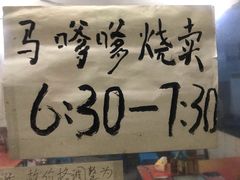 马嗲嗲烧卖
6:30—7:30